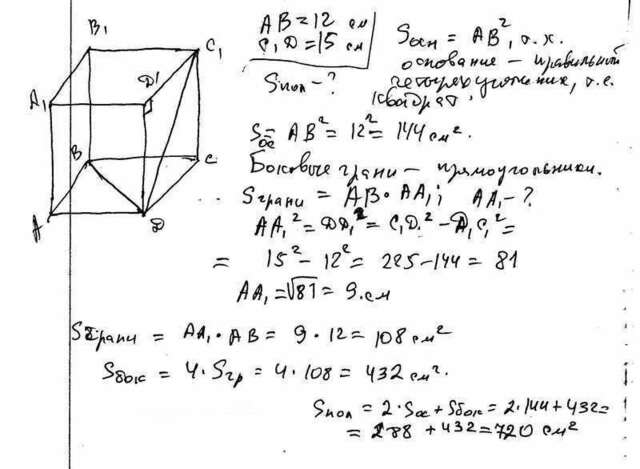 B₁
C₁
A₁
D¹
B
C
A
D
AB = 12 см
C₁D = 15 см
Sпол - ?
Sосн = AB², т.к.
основание – правильный
четырехугольник, т.е.
квадрат.
Sос = AB² = 12² = 144 см².
Боковые грани – прямоугольники.
Sграни = AB · AA₁; AA₁ - ?
AA₁² = DD₁² = C₁D² - D₁C₁² =
= 15² - 12² = 225 - 144 = 81
AA₁ = √81 = 9 см
Sграни = AA₁ · AB = 9 · 12 = 108 см²
Sбок = 4 · Sгр = 4 · 108 = 432 см².
Sпол = 2 · Sос + Sбок = 2 · 144 + 432 =
= 288 + 432 = 720 см²